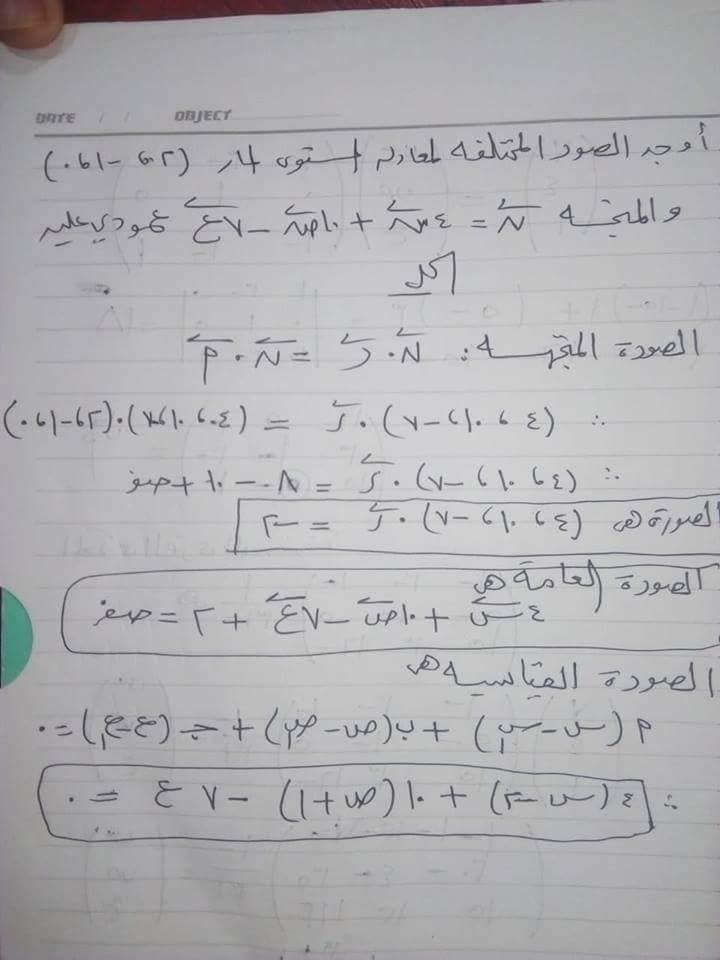 DATE / / OBJECT
أوجد الصور المختلفه لمعادلة المستوى المار (٢، -١، ٠)
والمتجه ن = ٤س + ١٠ص - ٧ع عمودي عليه
الحل
الصورة المتجهة: ن · ر = ن · م
∴ (٤، ١٠، -٧) · ر = (٤، ١٠، -٧) · (٢، -١، ٠)
∴ (٤، ١٠، -٧) · ر = ٨ - ١٠ + صفر
الصورة هى (٤، ١٠، -٧) · ر = -٢
الصورة العامة هى
٤س + ١٠ص - ٧ع + ٢ = صفر
الصورة القياسيه هى
م (س - س١) + ب (ص - ص١) + جـ (ع - ع١) = ٠
∴ ٤ (س - ٢) + ١٠ (ص + ١) - ٧ع = ٠